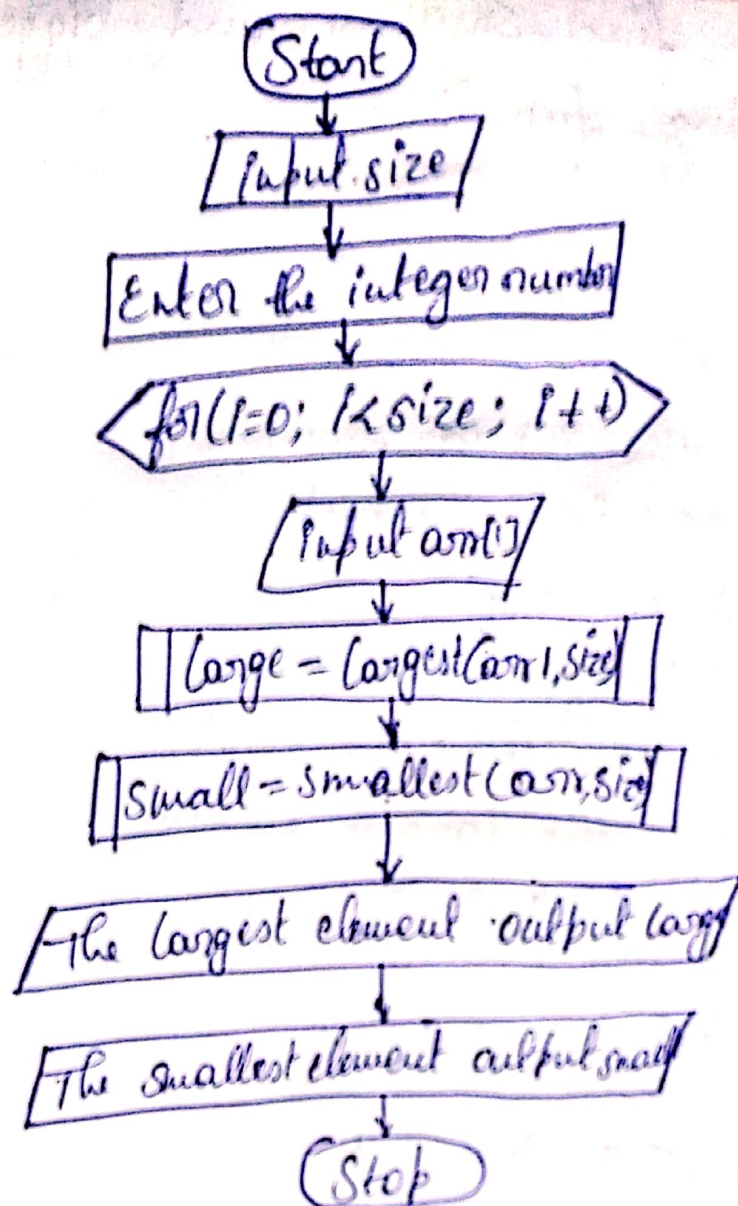 Start
input size
Enter the integer number
for(i=0; i<size; i++)
input arr[i]
large = largest(arr1,size)
small = smallest(arr,size)
The largest element output large
The smallest element output small
Stop